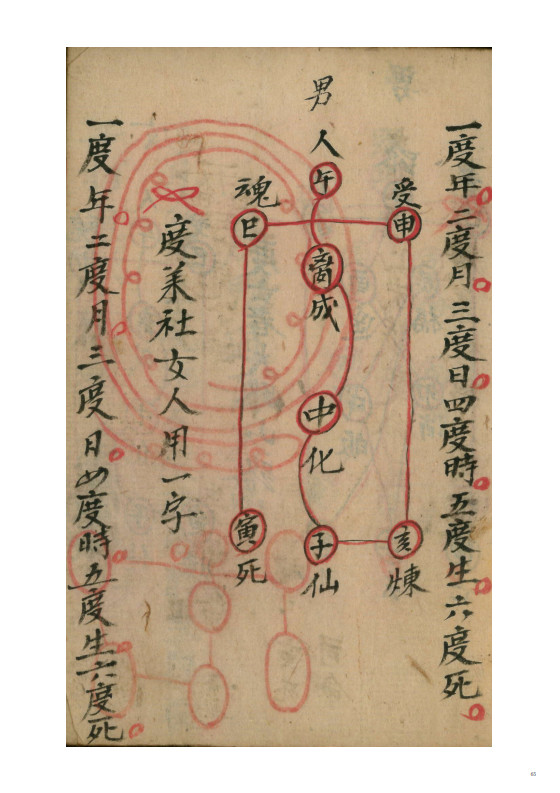 一度年二度月三度日四度時五度生六度死
受
申
亥
煉
男人
午
成
中
化
子
仙
魂
巳
寅
死
度某社女人用一字
一度年二度月三度日四度時五度生六度死
65